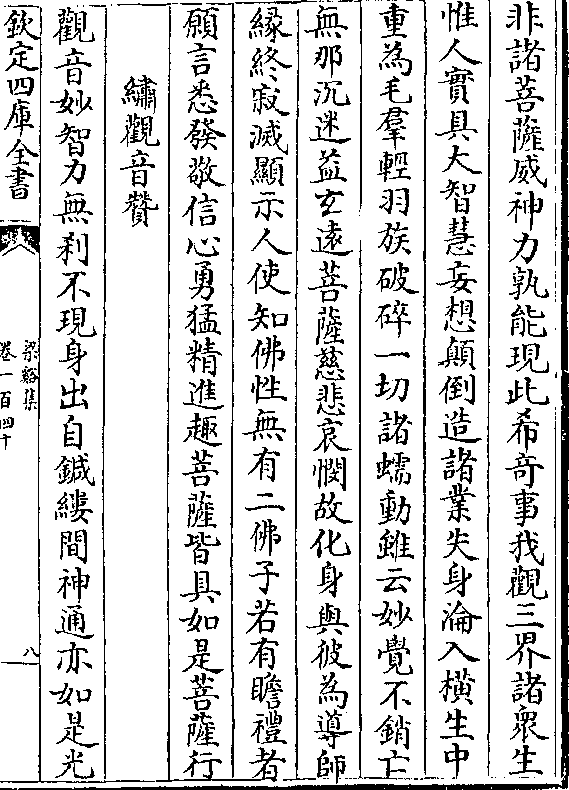 非諸菩薩威神力孰能現此希奇事我觀三界諸衆生
惟人實具大智慧妄想顛倒造諸業失身淪入橫生中
重為毛羣輕羽族破碎一切諸蠕動雖云妙覺不銷亡
無那沉迷益玄遠菩薩慈悲哀憫故化身與彼為導師
緣終寂滅顯示人使知佛性無有二佛子若有瞻禮者
願言悉發敬信心勇猛精進趣菩薩皆具如是菩薩行
繡觀音贊
觀音妙智力無刹不現身出自鍼縷間神通亦如是光
欽定四庫全書
梁谿集
卷一百四十
八